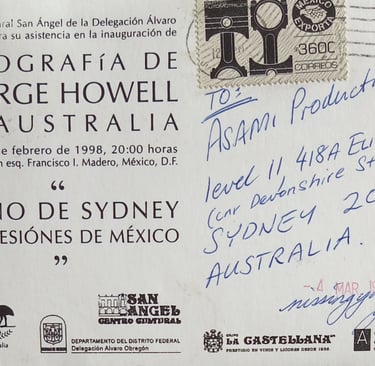 ral San Ángel de la Delegación Álvaro
ra su asistencia en la inauguración de
OGRAFÍA DE
RGE HOWELL
AUSTRALIA
e febrero de 1998, 20:00 horas
n esq. Francisco I. Madero, México, D.F.
“
IO DE SYDNEY
ESIÓNES DE MÉXICO
”
MEXICO
EXPORTA
360C
CORREOS
TO:
ASAMI Product
level 11 418A E
(cnr Devonshire St
SYDNEY 20
AUSTRALIA.
-4 MAR 19
missing
alia
SAN
ANGEL
CENTRO CULTURAL
DEPARTAMENTO DEL DISTRITO FEDERAL
Delegación Álvaro Obregón
GRUPO
LA CASTELLANA
PRESTIGIO EN VINOS Y LICORES DESDE
A